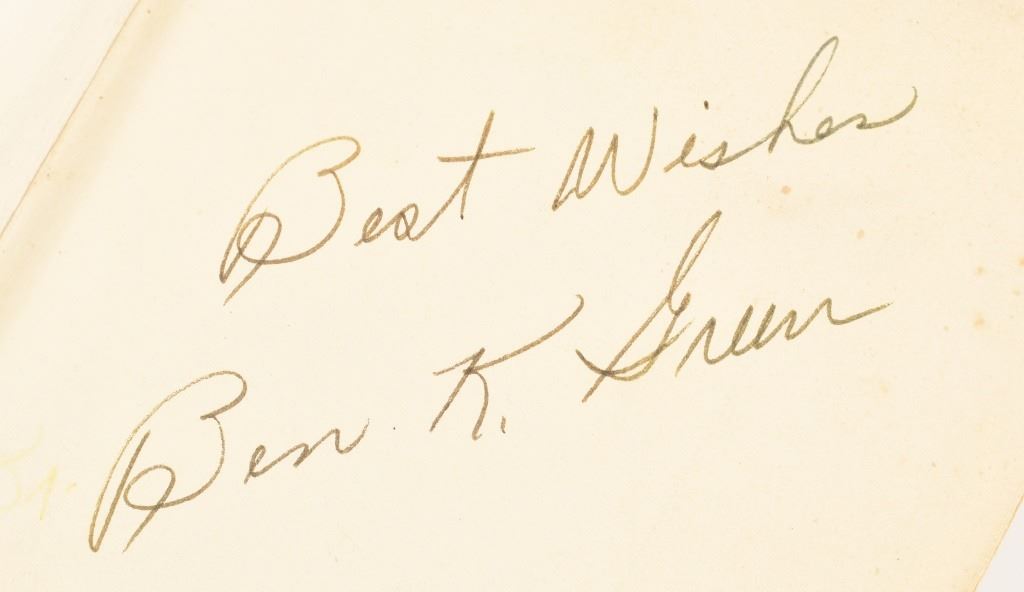 Best Wishes
Ben K. Green